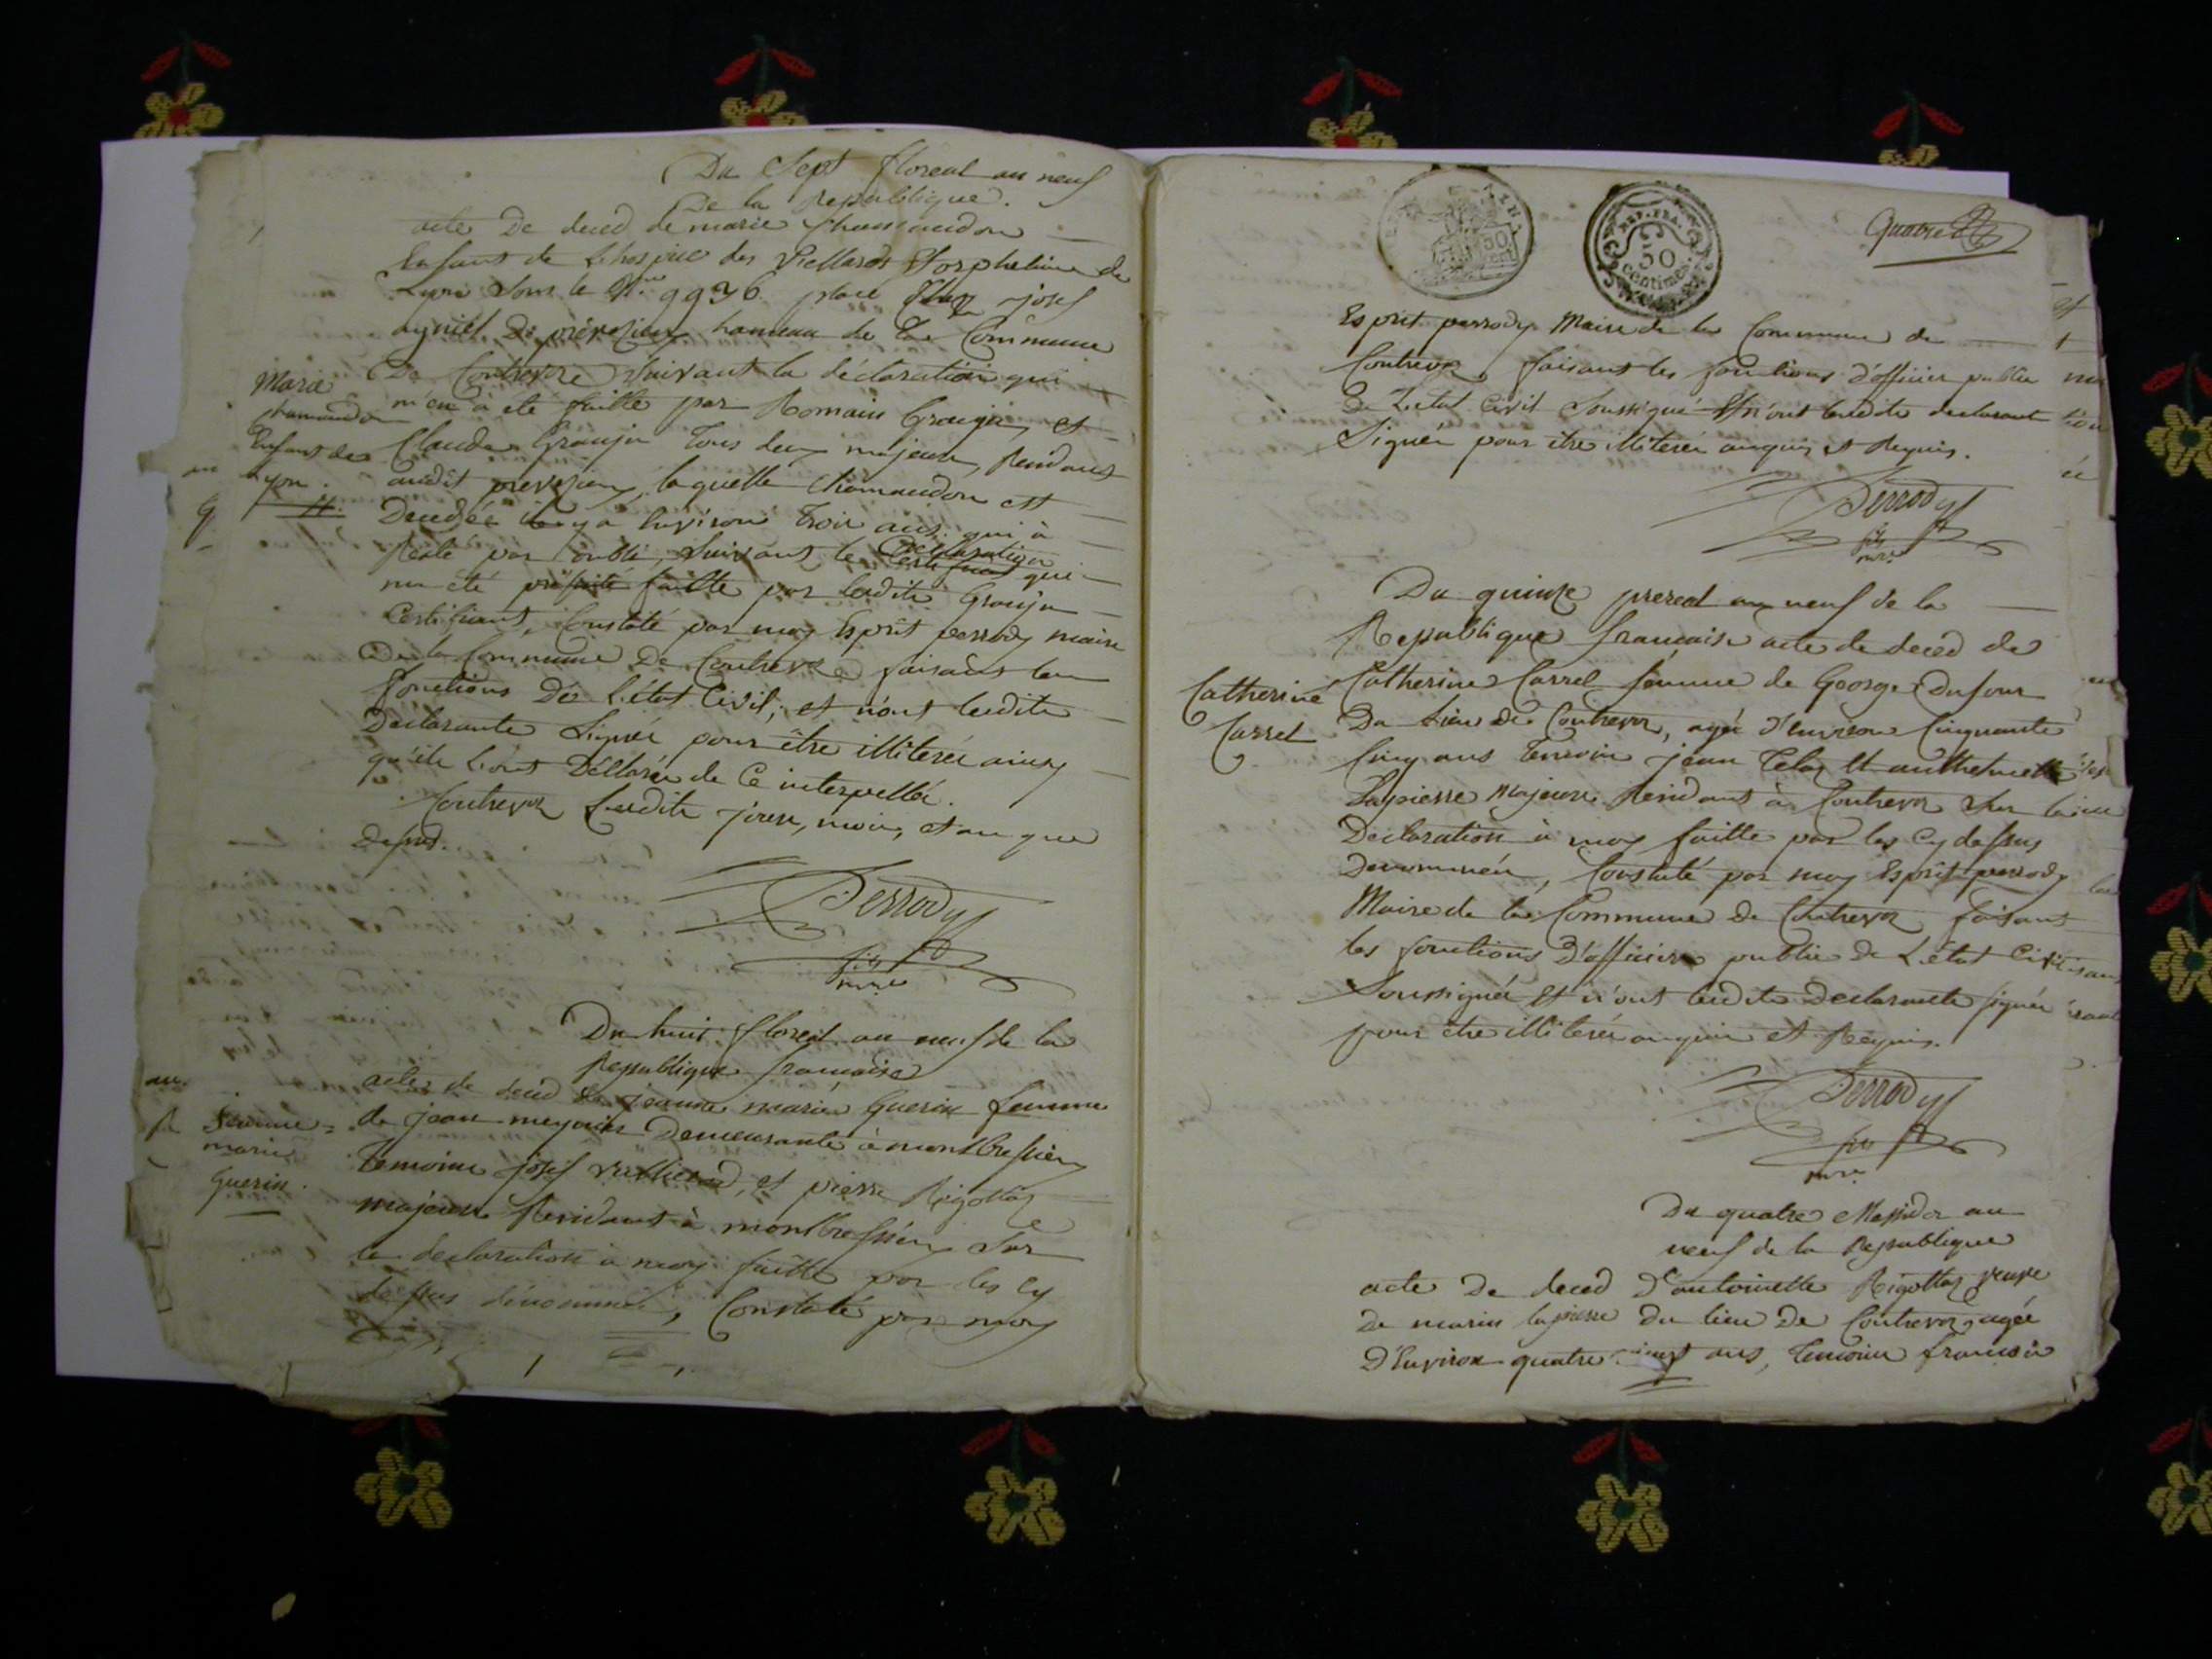 Du Sept floreal an neuf
De la Republique.
acte De deced de marie chamaudon
Enfant de Lhospice des Viellards & orpheline de
Lyon Sous le N.ro 9936 placé Chez josef
ayniel De prévezieu hameau de La Commune
De Contrevoz Suivant la déclaration qui
m'en à eté faitte par Romain Groujin, et
Claude Groujin tous deux majeurs, Residants
audit prevezieu, laquelle chamaudon est
Decedée il y a Environ trois ans qui à
Resté par oublie, Suivant le Declaration qui
ma été faitte par lesdits Groujin
Certifiant, Constaté par moy Esprit perrody maire
De la Commune De Contrevoz faisant les
fonctions De L'état Civil, et n'ont lesdits
Declarants Signés pour être illiterés ainsy
qu'ils l'ont Déclaré de Ce interpellés.
Contrevoz Lesdits jours, mois, et an que
dessus.
Marie
chamaudon
Enfant de
Lyon.
Perrody
fils
mre
Du huit floreal an neuf de la
Republique francaise
acte de deced de jeanne marie Guerin femme
de jean meynier Demeurante à montbressieu
Temoins josef Vuillerod, et pierre Rigottaz
majeurs Residants à montbressieu Sur
la declaration à moy faitte par les cy
dessus dénommés, Constaté par moy
jeanne
marie
Guerin.
REP. FRA.
50
centimes.
Quatre
Esprit perrody Maire de la Commune de
Contrevoz, faisant les fonctions d'officier public
De L'état Civil Soussigné & n'ont lesdits declarants
Signés pour être illiterés anquis et Requis.
Perrody
fils
mre
Du quinze prereal an neuf de la
Republique francaise acte de deced de
Catherine Carrel femme de George Dufour
Du Lieu de Contrevoz, agée d'Environ Cinquante
Cinq ans Temoins jean Telaz Et anthelmette
Lapierre majeurs Residants à Contrevoz Sur la
Declaration à moy faitte par les Cy dessus
Denommés, Constaté par moy Esprit perrody
Maire de la Commune de Contrevoz faisant
les fonctions D'officier public de L'état Civil
Soussigné et n'ont lesdits Declarants signés
pour être illiterés anquis et Requis.
Catherine
Carrel
Perrody
fils
mre
Du quatre Messidor an
neuf de la Republique
acte De deced D'antoinette Rigottaz veuve
De marin lapierre du lieu De Contrevoz, agée
D'Environ quatre vingt ans, Temoins francois